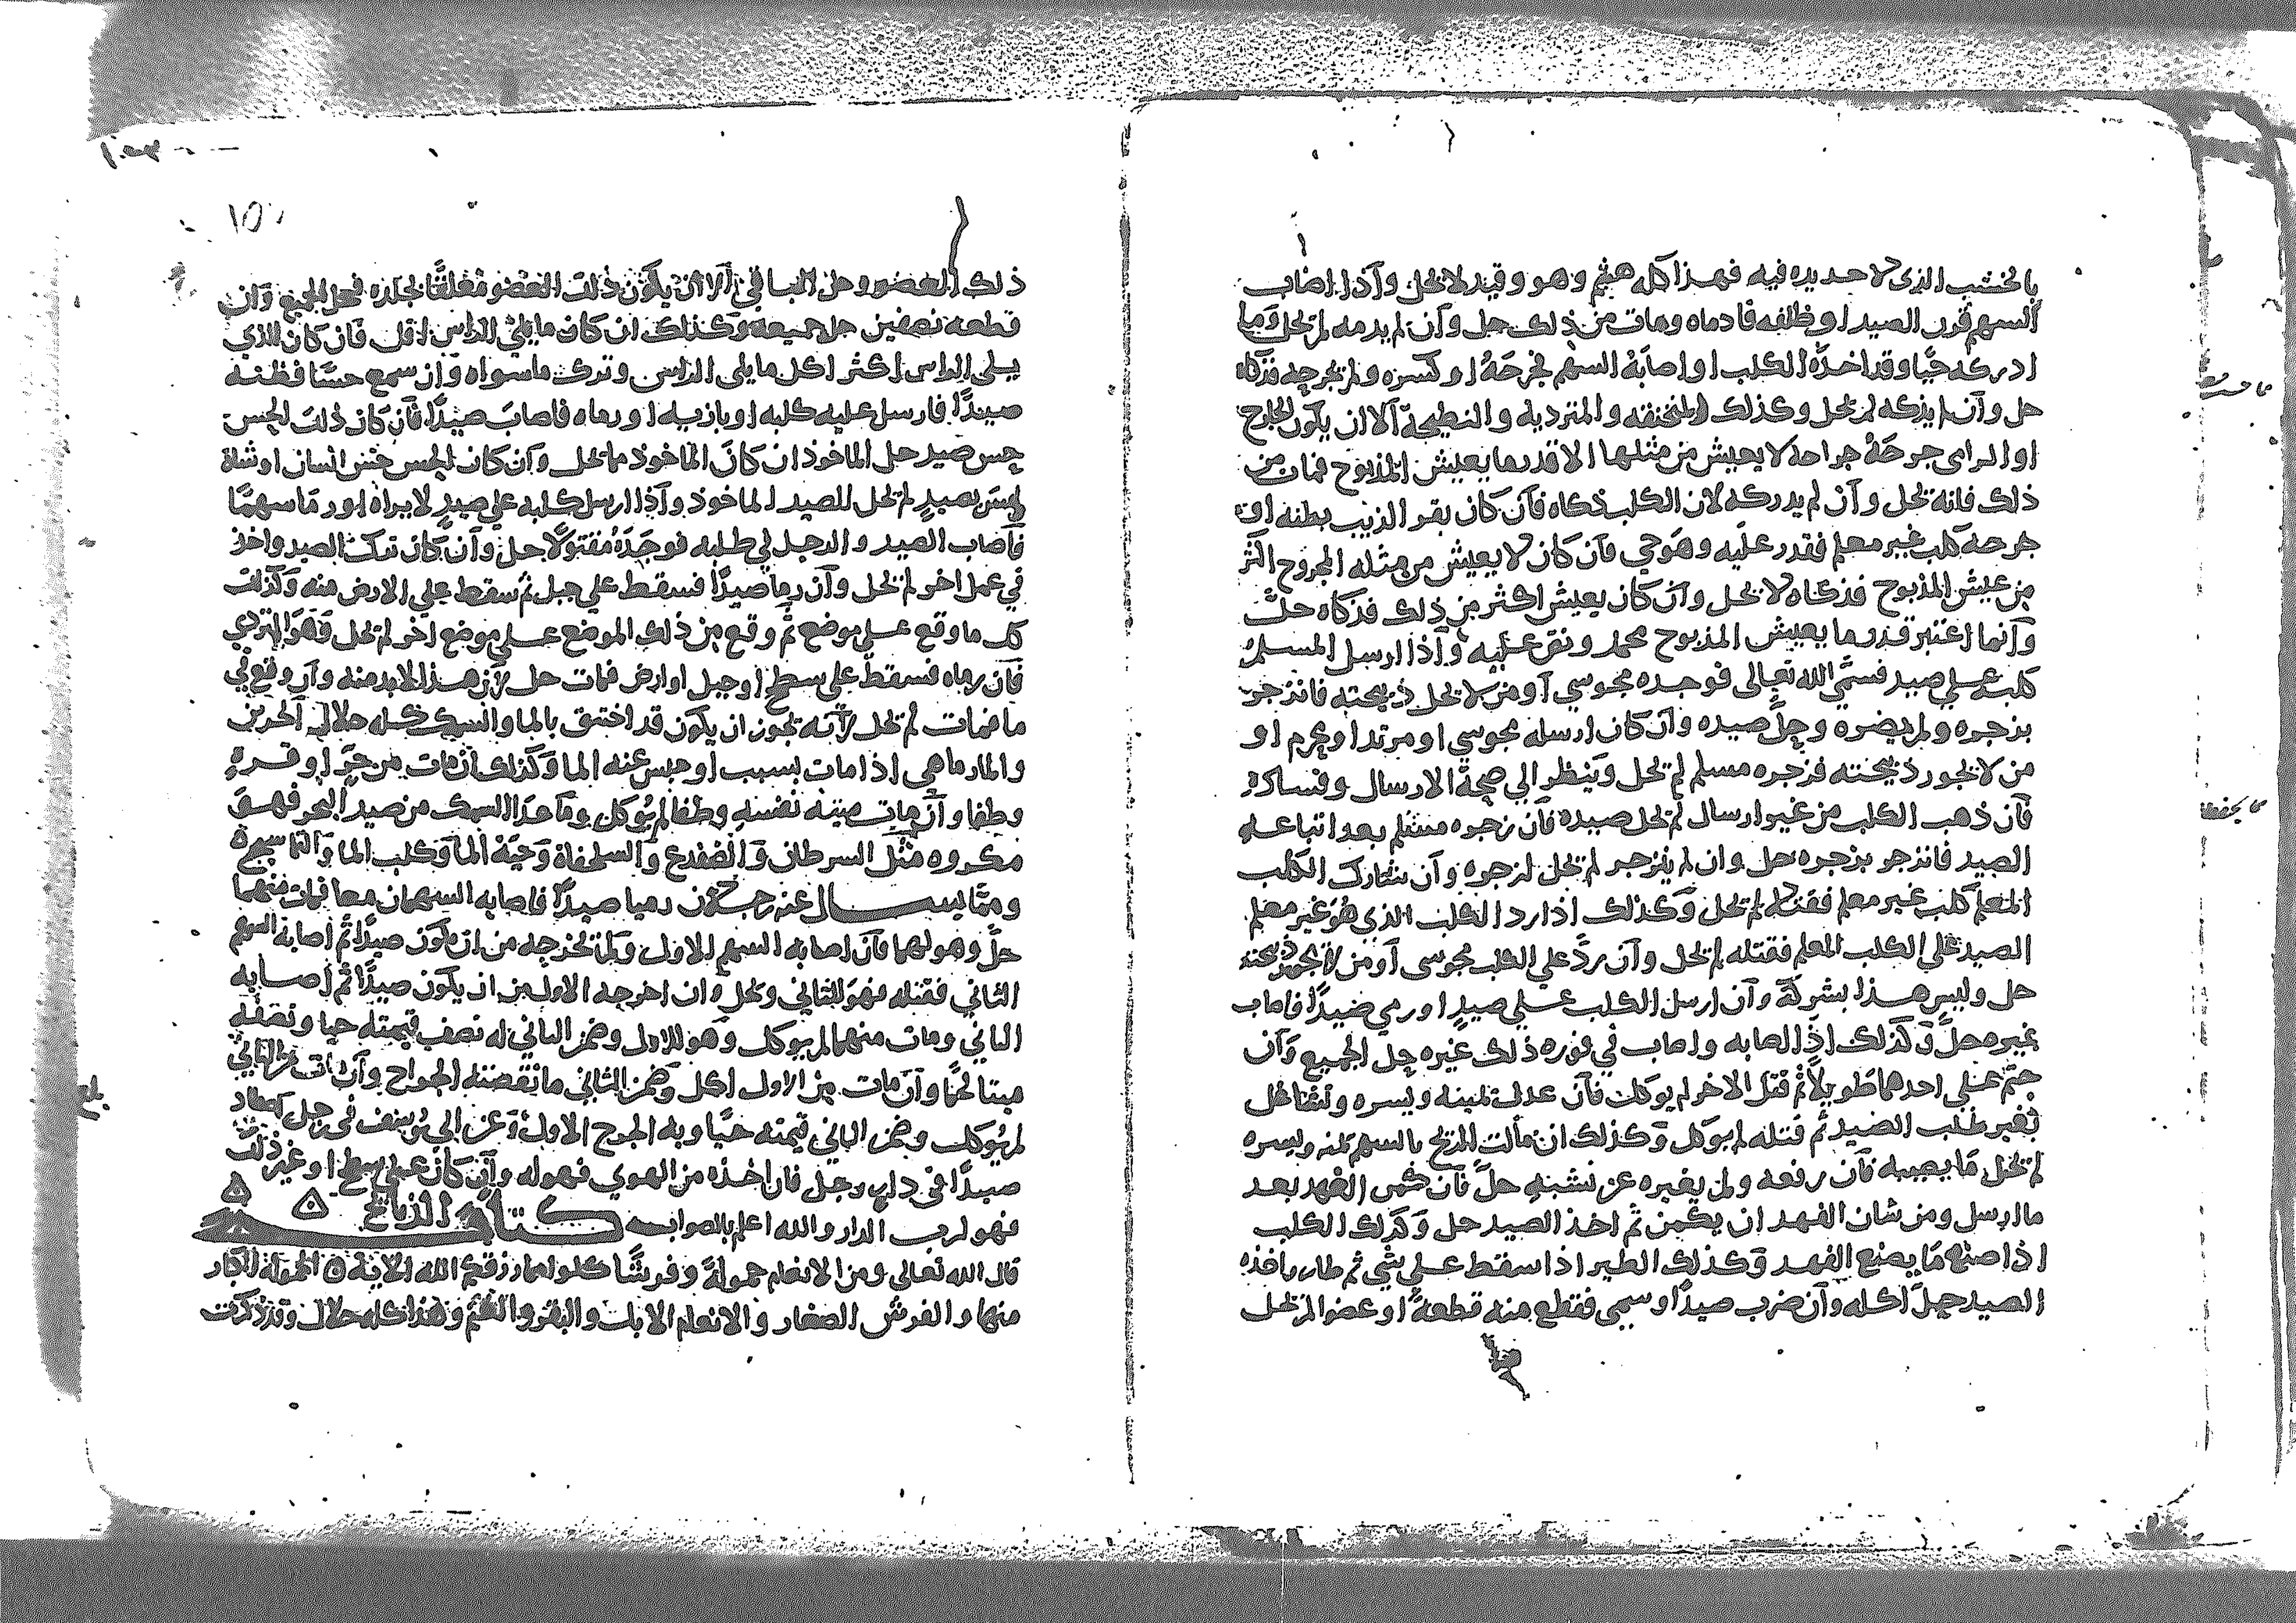 بالخشب الذي لا حديده فيه فهذا كله هشم وهو وقيذ لا يحل وآذا اصاب
السهم قرن الصيد او ظلفه فادماه ومات من ذلك حل وآن لم يدمه لم يحل وما
ادركه حيا وقد اخذه الكلب او اصابه السهم فجرحه او كسره ولم يجرحه فذكاه
حل وآن لم يذكه لم يحل وكذلك المنخنقه والمتردية والنطيحة آلا ان يكون الجارح
او الرامى جرحه جراحة لا يعيش من مثلها الا قدر ما يعيش المذبوح فمات من
ذلك فانه يحل وآن لم يدركه لان الكلب ذكاه فآن كان بقر الذيب بطنه او
جرحه كلب غير معلم فقدر عليه وهو حي فآن كان لا يعيش من مثله المجروح اكثر
من عيش المذبوح فذكاه لا يحل وآن كان يعيش اكثر من ذلك فذكاه حل
وآنما اعتبر قدر ما يعيش المذبوح محمد ونص عليه وآذا ارسل المسلم
كلبه على صيد فسمى الله تعالى فوجده مجوسي آو من لا تحل ذبيحته فانزجر
بزجره ولم يضره وحل صيده وآن كان ارسله مجوسي او مرتد او محرم او
من لا تجوز ذبيحته فزجره مسلم لم يحل وينظر الي صحة الارسال وفساده
فآن ذهب الكلب من غير ارسال لم يحل صيده فآن زجره مسلم بعد اتباعه
الصيد فانزجر بزجره حل وان لم ينزجر لم يحل لزجره وآن شارك الكلب
المعلم كلب غير معلم فقتله لم يحل وكذلك اذا رد الكلب الذي هو غير معلم
الصيد على الكلب المعلم فقتله لم يحل وآن رد علي الكلب مجوسى آو من لا تجوز ذبيحته
حل وليس هذا بشركة وآن ارسل الكلب على صيد او رمى صيدا فاصاب
غيره حل وكذلك اذا اصابه واصاب في فوره ذلك غيره حل الجميع وآن
جثم على احدهما طويلا ثم قتل الاخر لم يوكل فآن عدل يمينه ويسره وتشاغل
بغير طلب الصيد ثم قتله لم يوكل وكذلك ان مالت الريح بالسهم يمنه ويسره
لم يحل ما يصيبه فآن رفعه ولم يغيره عن نشبه حل فآن كمن الفهد بعد
ما ارسل ومن شان الفهد ان يكمن ثم اخذ الصيد حل وكذلك الكلب
اذا صنع ما يصنع الفهد وكذلك الطير اذا سقط على شي ثم طار فاخذه
الصيد حل اكله وآن ضرب صيدا وسمى فقطع منه قطعة او عضوا لم يحل
ذلك العضو وحل الباقي آلا ان يكون ذلك العضو معلقا بجلده فيحل الجميع وآن
قطعه نصفين حل جميعه وكذلك ان كان ما يلي الراس اقل فآن كان الذي
يلي الراس اكثر اكل ما يلى الراس وترك ما سواه وآن سمع حسا فظنه
صيدا فارسل عليه كلبه او بازيه او رماه فاصاب صيدا فآن كان ذلك الحس
حس صيد حل الماخوذ ان كان الماخوذ مما يحل وآن كان الحس حس انسان او شاة
ليس بصيد لم يحل الصيد الماخوذ وآذا ارسل كلبه علي صيد لا يراه او رما سهما
فآصاب الصيد والرجل في طلبه فوجده مقتولا حل وآن كان ترك الصيد واخذ
في عمل اخر لم يحل وآن رما صيدا فسقط علي جبل ثم سقط علي الارض منه وكذلك
كل ما وقع على موضع ثم وقع من ذلك الموضع على موضع اخر لم يحل وهو المتردي
فآن رماه فسقط على سطح او جبل او ارض فمات حل لآن هذا لابد منه وآن وقع في
ما فمات لم يحل لآنه يجوز ان يكون قد اختنق بالما والسمك كله حلال الجريث
والمارماهي اذا مات بسبب او حبس عنه الما وكذلك ان مات من حر او قر
وطفا وآن مات ميتة نفسه وطفا لم يوكل وما عدا السمك من صيد البحر فهو
مكروه مثل السرطان والضفدع والسلحفاة وحية الما وكلب الما والتماسيح
ومما يسال عنه رجلان رميا صيدا فاصابه السهمان معا فمات منهما
حل وهو لهما فآن اصابه السهم الاول ولم يخرجه من ان يكون صيدا ثم اصابه السهم
الثاني فقتله فهو للثاني ويحل وآن اخرجه الاول من ان يكون صيدا ثم اصابه
الثاني ومات منهما لم يوكل وهو للاول وضمن الثاني له نصف قيمته حيا ونصفه
ميتا لحما وآن مات من الاول اكل وضمن الثاني ما نقصته الجراح وآن مات من الثاني
لم يوكل وضمن الثاني قيمته حيا وبه الجرح الاول وعن ابي يوسف في رجل اصطاد
صيدا فى دار رجل فان اخذه من الهوي فهو له وآن كان على سطح او غير ذلك
فهو لرب الدار والله اعلم بالصواب كتاب الذبايح
قال الله تعالى ومن الانعام حمولة وفرشا كلوا مما رزقكم الله الاية الحمولة الكبار
منها والفرش الصغار والانعام الابل والبقر والغنم وهذا كله حلال وقد ذكرت